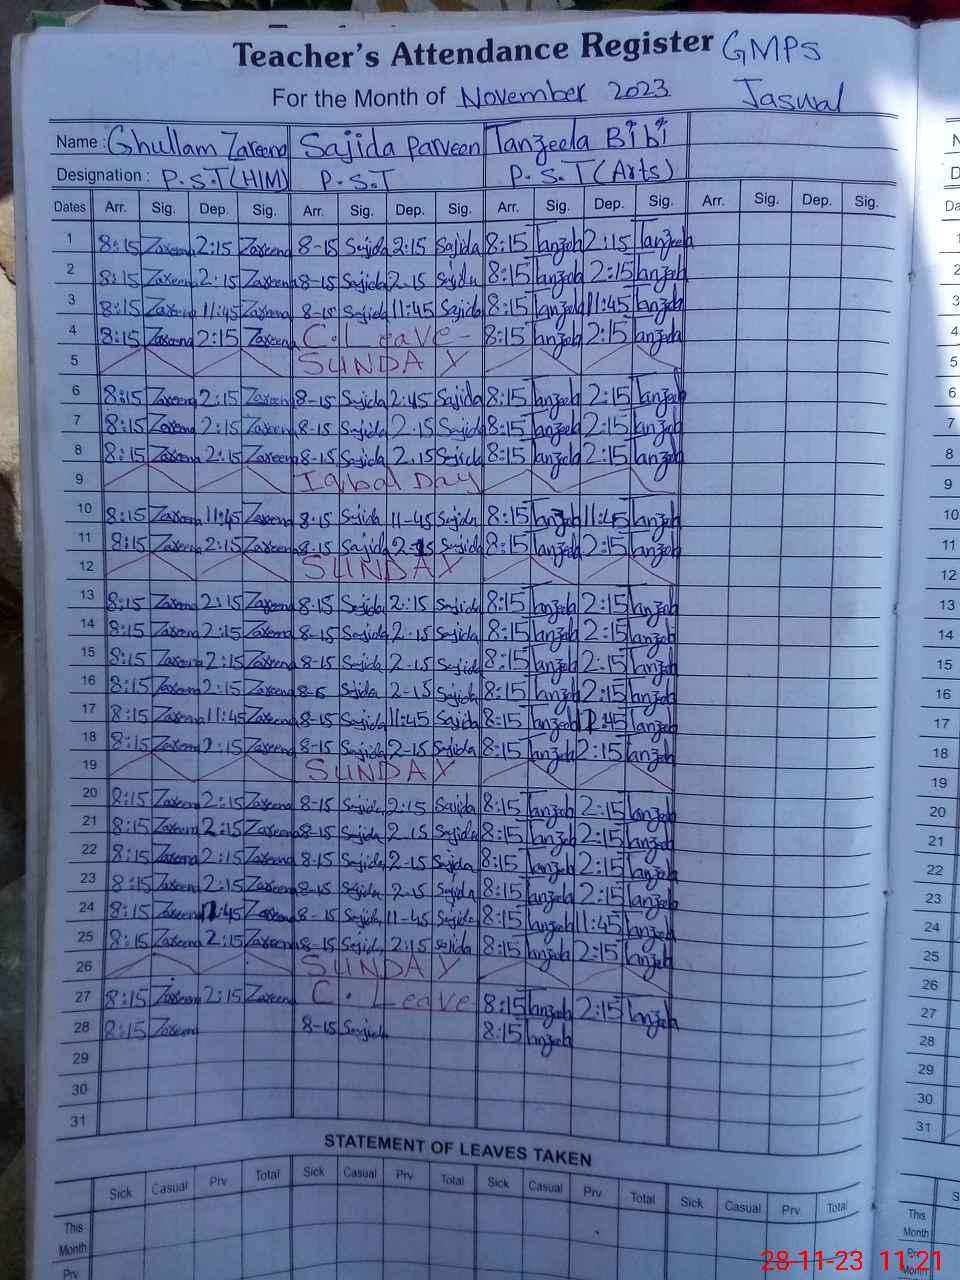 Teacher's Attendance Register GMPS
For the Month of November 2023 Jaswal
Name : Ghullam Zareena Sajida Parveen Tanzeela Bibi
Designation : P.S.T(H/M) P.S.T P.S.T (Arts)
Dates Arr. Sig. Dep. Sig. Arr. Sig. Dep. Sig. Arr. Sig. Dep. Sig. Arr. Sig. Dep. Sig.
1 8:15 Zareena 2:15 Zareena 8-15 Sajida 2:15 Sajida 8:15 Tanzeela 2:15 Tanzeela
2 8:15 Zareena 2:15 Zareena 8-15 Sajida 2.15 Sajida 8:15 Tanzeela 2:15 Tanzeela
3 8:15 Zareena 11:45 Zareena 8-15 Sajida 11:45 Sajida 8:15 Tanzeela 11:45 Tanzeela
4 8:15 Zareena 2:15 Zareena C. Leave- 8:15 Tanzeela 2:15 Tanzeela
5 SUNDAY
6 8:15 Zareena 2:15 Zareena 8-15 Sajida 2:45 Sajida 8:15 Tanzeela 2:15 Tanzeela
7 8:15 Zareena 2:15 Zareena 8-15 Sajida 2.15 Sajida 8:15 Tanzeela 2:15 Tanzeela
8 8:15 Zareena 2:15 Zareena 8-15 Sajida 2.15 Sajida 8:15 Tanzeela 2:15 Tanzeela
9 Iqbal Day
10 8:15 Zareena 11:45 Zareena 8:15 Sajida 11-45 Sajida 8:15 Tanzeela 11:45 Tanzeela
11 8:15 Zareena 2:15 Zareena 8-15 Sajida 2-15 Sajida 8:15 Tanzeela 2:15 Tanzeela
12 SUNDAY
13 8:15 Zareena 2:15 Zareena 8-15 Sajida 2:15 Sajida 8:15 Tanzeela 2:15 Tanzeela
14 8:15 Zareena 2:15 Zareena 8-15 Sajida 2-15 Sajida 8:15 Tanzeela 2:15 Tanzeela
15 8:15 Zareena 2:15 Zareena 8-15 Sajida 2-15 Sajida 8:15 Tanzeela 2:15 Tanzeela
16 8:15 Zareena 2:15 Zareena Sajida 2-15 Sajida 8:15 Tanzeela 2:15 Tanzeela
17 8:15 Zareena 11:45 Zareena 8-15 Sajida 11:45 Sajida 8:15 Tanzeela Tanzeela
18 8:15 Zareena 2:15 Zareena 8-15 Sajida 2-15 Sajida 8:15 Tanzeela 2:15 Tanzeela
19 SUNDAY
20 8:15 Zareena 2:15 Zareena 8-15 Sajida 2:15 Sajida 8:15 Tanzeela 2:15 Tanzeela
21 8:15 Zareena 2:15 Zareena 8-15 Sajida 2-15 Sajida 8:15 Tanzeela 2:15 Tanzeela
22 8:15 Zareena 2:15 Zareena 8-15 Sajida 2-15 Sajida 8:15 Tanzeela 2:15 Tanzeela
23 8:15 Zareena 2:15 Zareena 8-15 Sajida 2-15 Sajida 8:15 Tanzeela 2:15 Tanzeela
24 8:15 Zareena 11:45 Zareena 8-15 Sajida 11-45 Sajida 8:15 Tanzeela 11:45 Tanzeela
25 8:15 Zareena 2:15 Zareena 8-15 Sajida 2:15 Sajida 8:15 Tanzeela 2:15 Tanzeela
26 SUNDAY
27 8:15 Zareena 2:15 Zareena C. Leave 8:15 Tanzeela 2:15 Tanzeela
28 8:15 Zareena 8-15 Sajida 8:15 Tanzeela
29
30
31
STATEMENT OF LEAVES TAKEN
Sick Casual Prv Total Sick Casual Prv Total Sick Casual Prv Total Sick Casual Prv Total
This
Month
Prv
28-11-23 11:21